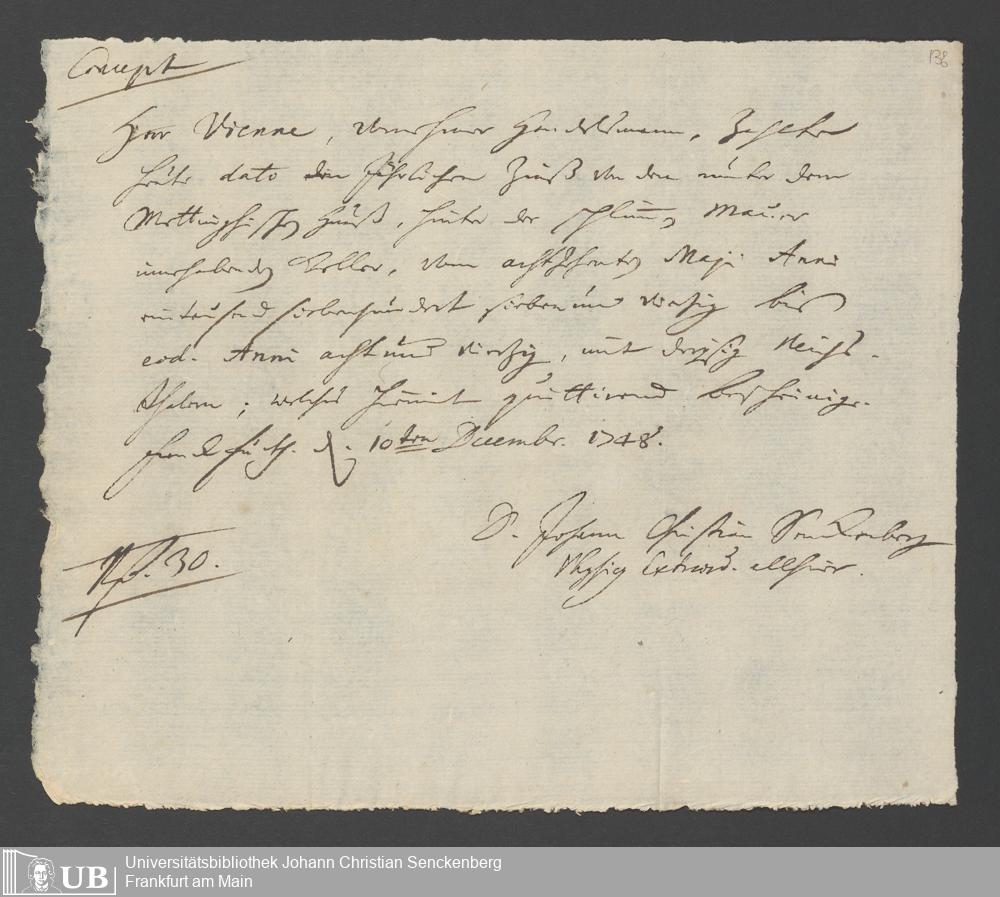 Concept
138
Herr Vienne, vornehmer Handelsmann, Zahlte
heute dato den Jährlichen Zinß von dem unter dem
Haus, hinter der schlim̄en Mauer
innehabenden Keller, vom achtzehenten Maji Anni
eintausend siebenhundert siebenund vierzig bis
eod. Anni acht und vierzig, mit dreysig Reichs-
thalern; welches hiermit quittirend bescheinige.
Franckfurth. d. 10ten Decembr. 1748.
D. Johann Christian Senckenberg
Physicq Extraord. allhier.
Rth. 30.
UB Universitätsbibliothek Johann Christian Senckenberg
Frankfurt am Main